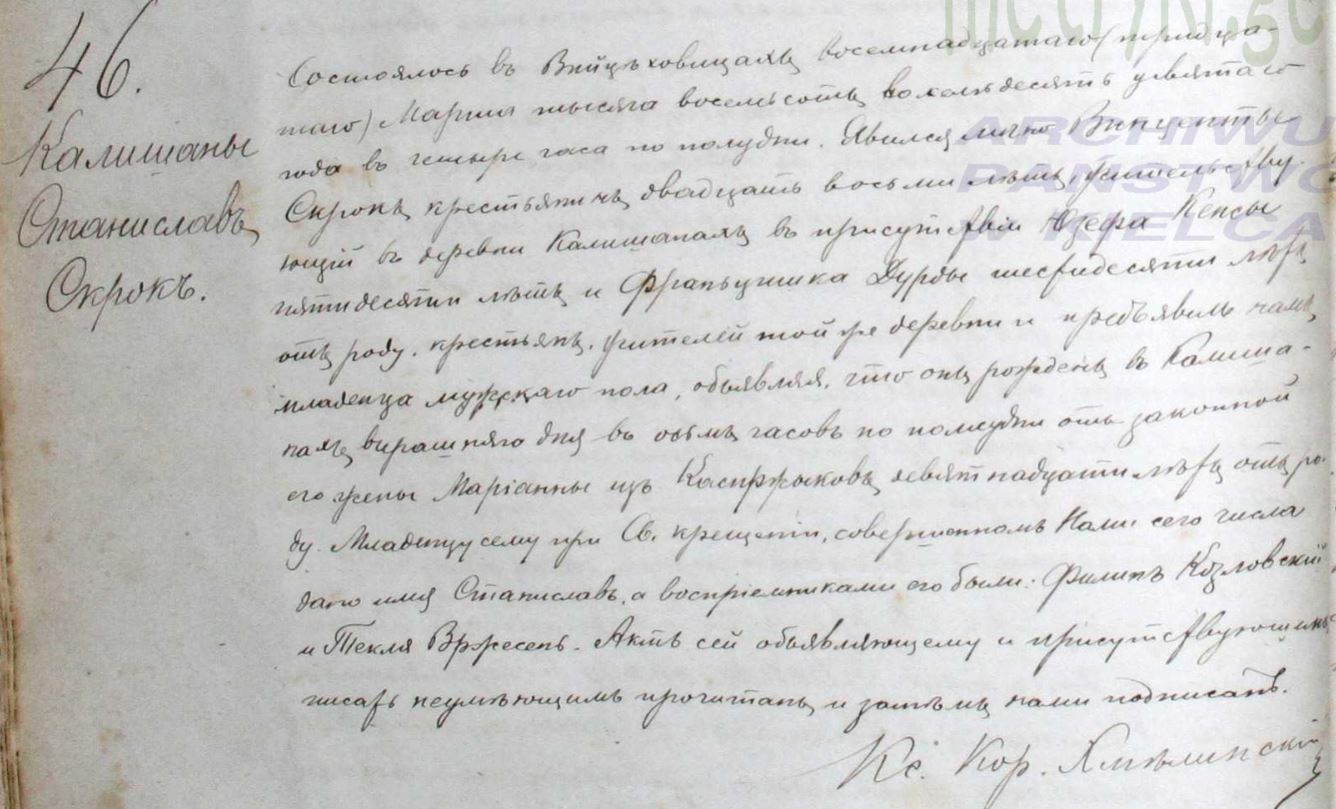 46.
Калишаны
Станиславъ
Скрокъ.
Состоялось въ Войцѣховицахъ восемнадцатаго (тридца-
таго) Марта тысяча восемьсотъ восемьдесятъ девятаго
года въ четыре часа по полудни. Явился лично Винценты
Скрокъ крестьянинъ двадцати восьми лѣтъ жительству-
ющій въ деревни Калишанахъ въ присутствіи Юзефа Кепсы
пятидесяти лѣтъ и Франьцишка Дурды шестидесяти лѣтъ
отъ роду, крестьянъ, жителей той же деревни и предъявилъ намъ
младенца мужскаго пола, объявляя, что онъ рожденъ въ Калиша-
нахъ вчерашняго дня въ осьмъ часовъ по полудни отъ законной
его жены Маріанны изъ Каспржыковъ девятнадцати лѣтъ отъ ро-
ду. Младенцу сему при Св. крещеніи, совершенномъ Нами сего числа
дано имя Станиславъ, а воспріемниками его были: Филипъ Козловскій
и Текля Вржесень. Актъ сей объявляющему и присутствующимъ
писать неумѣющимъ прочитанъ и затѣмъ нами подписанъ.
Кс. Кор. Хмѣлинскій
metryki.ge
ARCHIWU
PAŃSTWO
W KIELCA